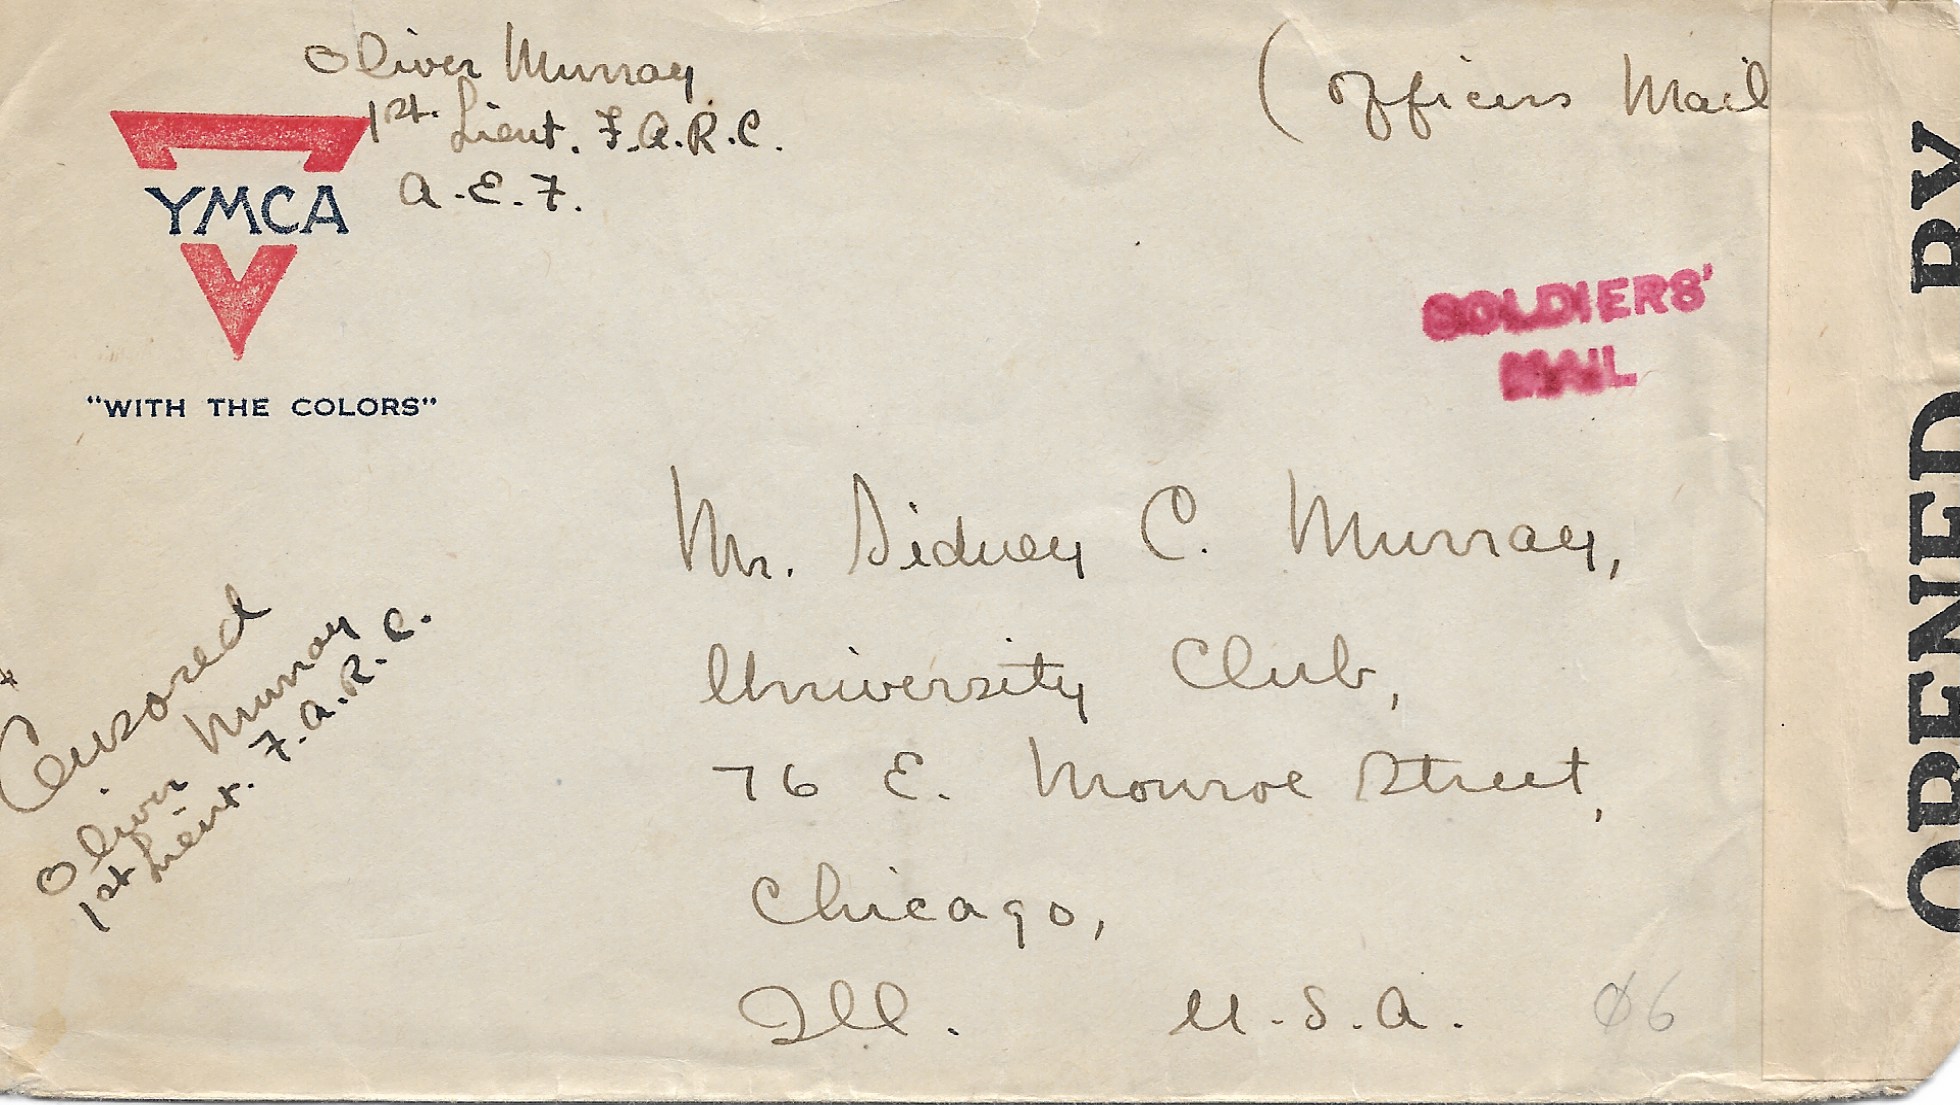 Oliver Murray
1st. Lieut. F.A.R.C.
A.E.F.
(Officers Mail
YMCA
"WITH THE COLORS"
SOLDIERS'
MAIL
Mr. Sidney C. Murray,
University Club,
76 E. Monroe Street,
Chicago,
Ill. U.S.A.
06
Censored
Oliver Murray
1st Lieut. F.A.R.C.
OPENED BY